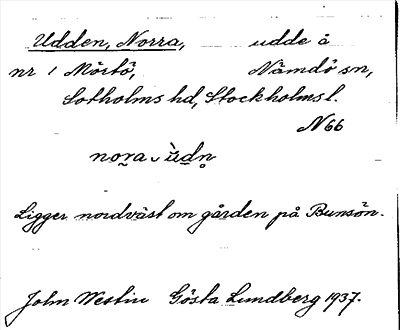 Udden, Norra, udde å
nr 1 Mörtö, Nämdö sn,
Sotholms hd, Stockholms l.
N66
Ligger nordväst om gården på Bunsön.
John Westin Gösta Lundberg 1937.